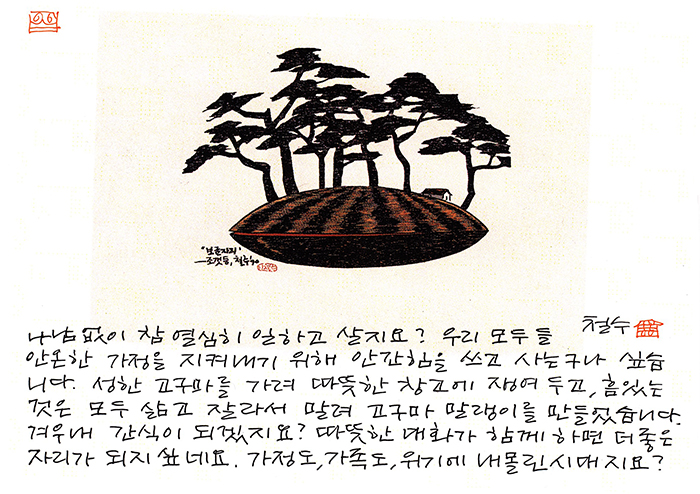 "보금자리"
철수
철수
나남없이 참 열심히 일하고 살지요? 우리 모두들
안온한 가정을 지켜내기 위해 안간힘을 쓰고 사는구나 싶습
니다. 성한 고구마를 가려 따뜻한 창고에 쟁여 두고, 흠있는
것은 모두 삶고 잘라서 말려 고구마 말랭이를 만들었습니다.
겨우내 간식이 되겠지요? 따뜻한 대화가 함께 하면 더 좋은
자리가 되지 싶네요. 가정도, 가족도, 위기에 내몰린 시대지요?